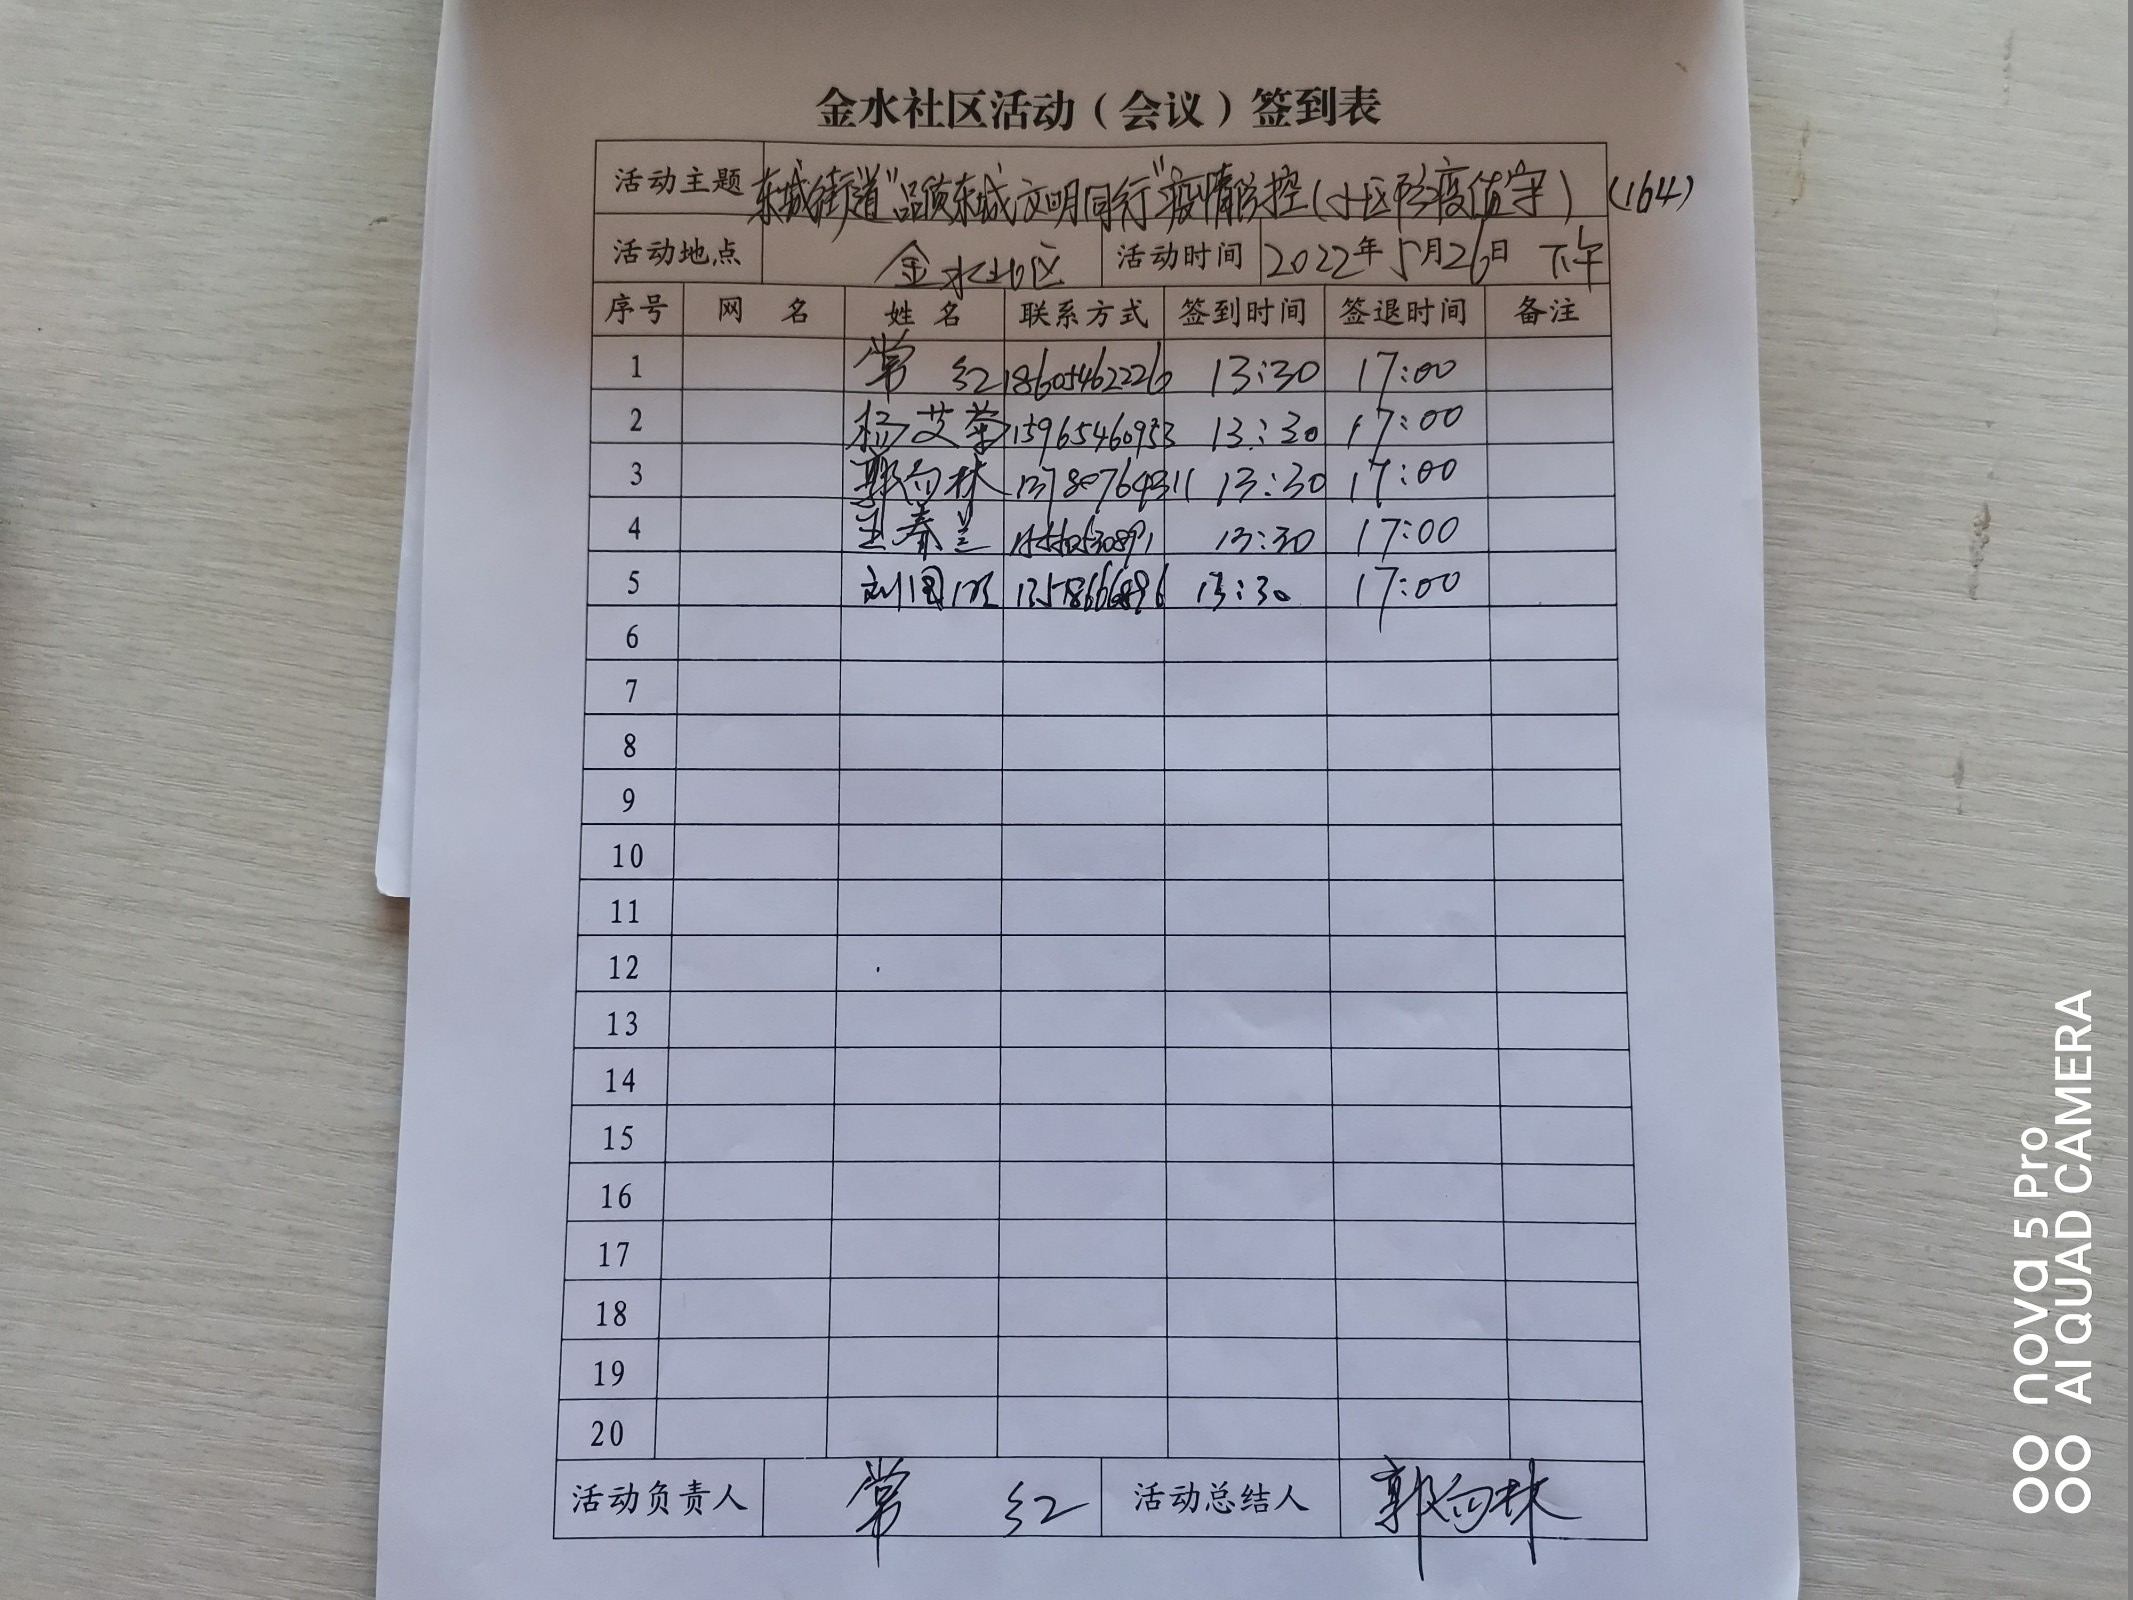 金水社区活动（会议）签到表
活动主题 东城街道"品质东城 文明同行"疫情防控(小区防疫值守) (164)
活动地点 金水社区 活动时间 2022年5月26日 下午
序号 网 名 姓 名 联系方式 签到时间 签退时间 备注
1 常 红 18605462226 13:30 17:00
2 杨艾菊 15965460953 13:30 17:00
3 郭向林 13780764311 13:30 17:00
4 王春兰 13:30 17:00
5 刘国 13:30 17:00
6
7
8
9
10
11
12
13
14
15
16
17
18
19
20
活动负责人 常 红 活动总结人 郭向林
nova 5 Pro
AI QUAD CAMERA